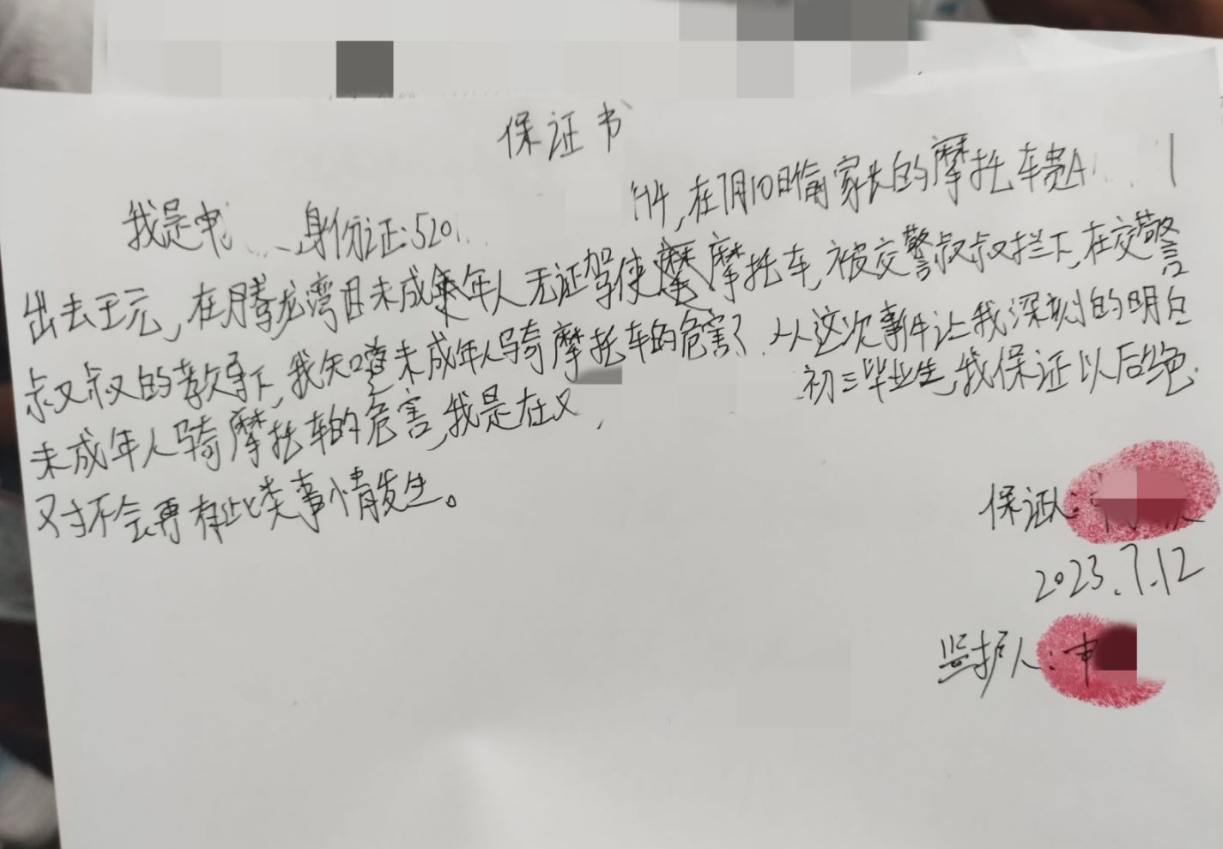 保证书
我是申 身份证:520 在7月10日偷家长的摩托车贵A
出去玩, 在腾龙湾因未成年人无证驾使摩托车,被交警叔叔拦下,在交警
叔叔的教导下,我知道未成年人骑摩托车的危害了.从这次事件让我深刻的明白
未成年人骑摩托车的危害,我是在 初三毕业生,我保证以后绝
对不会再有此类事情发生。
保证人:
2023.7.12
监护人:申